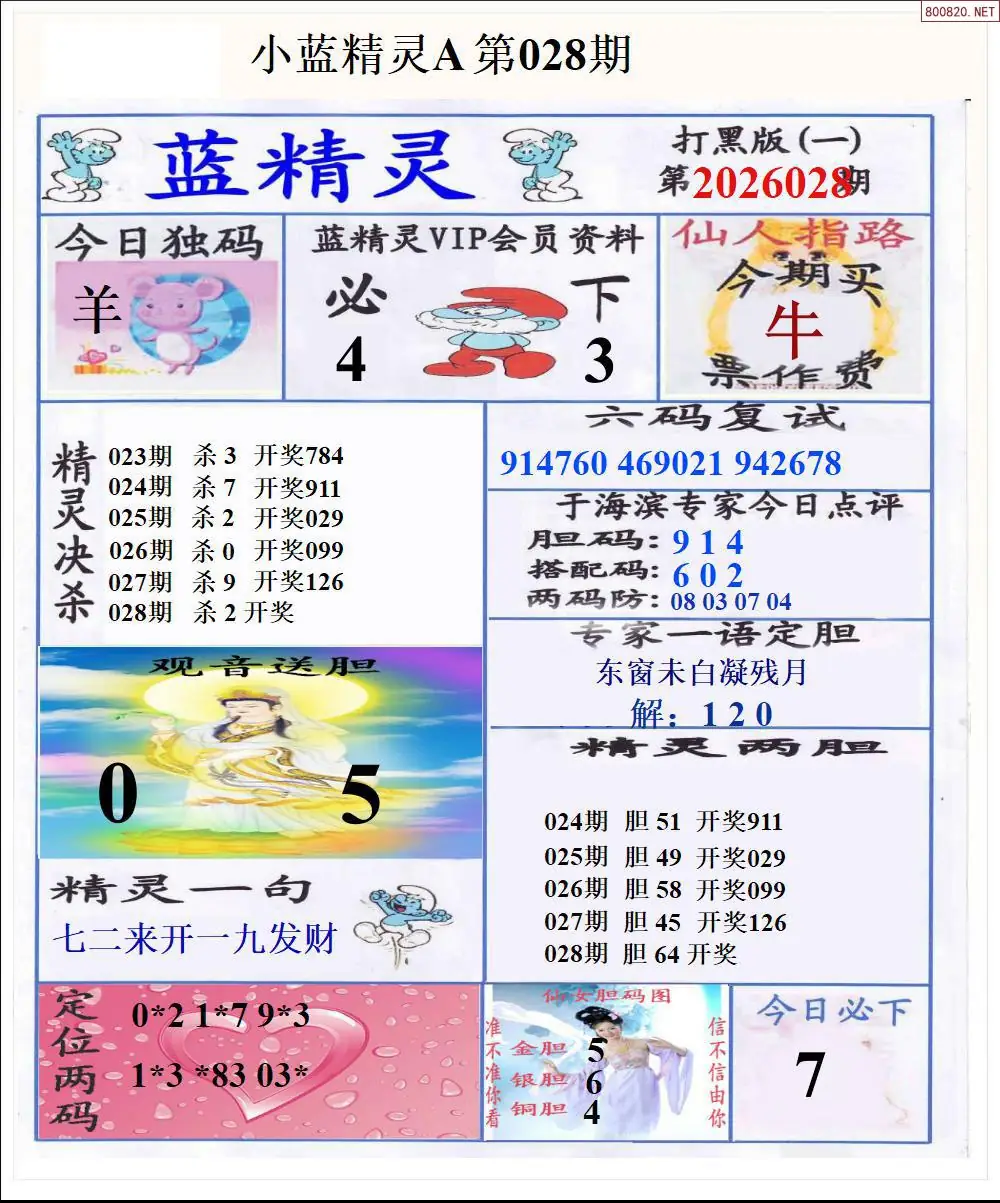 800820.NET
小蓝精灵A 第028期
蓝精灵
打黑版(一)
第2026028期
今日独码
羊
蓝精灵VIP会员资料
必 下
4 3
仙人指路
今期买
牛
票作费
精灵决杀
023期 杀 3 开奖784
024期 杀 7 开奖911
025期 杀 2 开奖029
026期 杀 0 开奖099
027期 杀 9 开奖126
028期 杀 2 开奖
六码复试
914760 469021 942678
于海滨专家今日点评
胆码: 9 1 4
搭配码: 6 0 2
两码防: 08 03 07 04
专家一语定胆
东窗未白凝残月
解: 1 2 0
观音送胆
0 5
精灵两胆
024期 胆 51 开奖911
025期 胆 49 开奖029
026期 胆 58 开奖099
027期 胆 45 开奖126
028期 胆 64 开奖
精灵一句
七二来开一九发财
定位两码
0*2 1*7 9*3
1*3 *83 03*
仙女胆码图
准不准你看
金胆 5
银胆 6
铜胆 4
信不信由你
今日必下
7